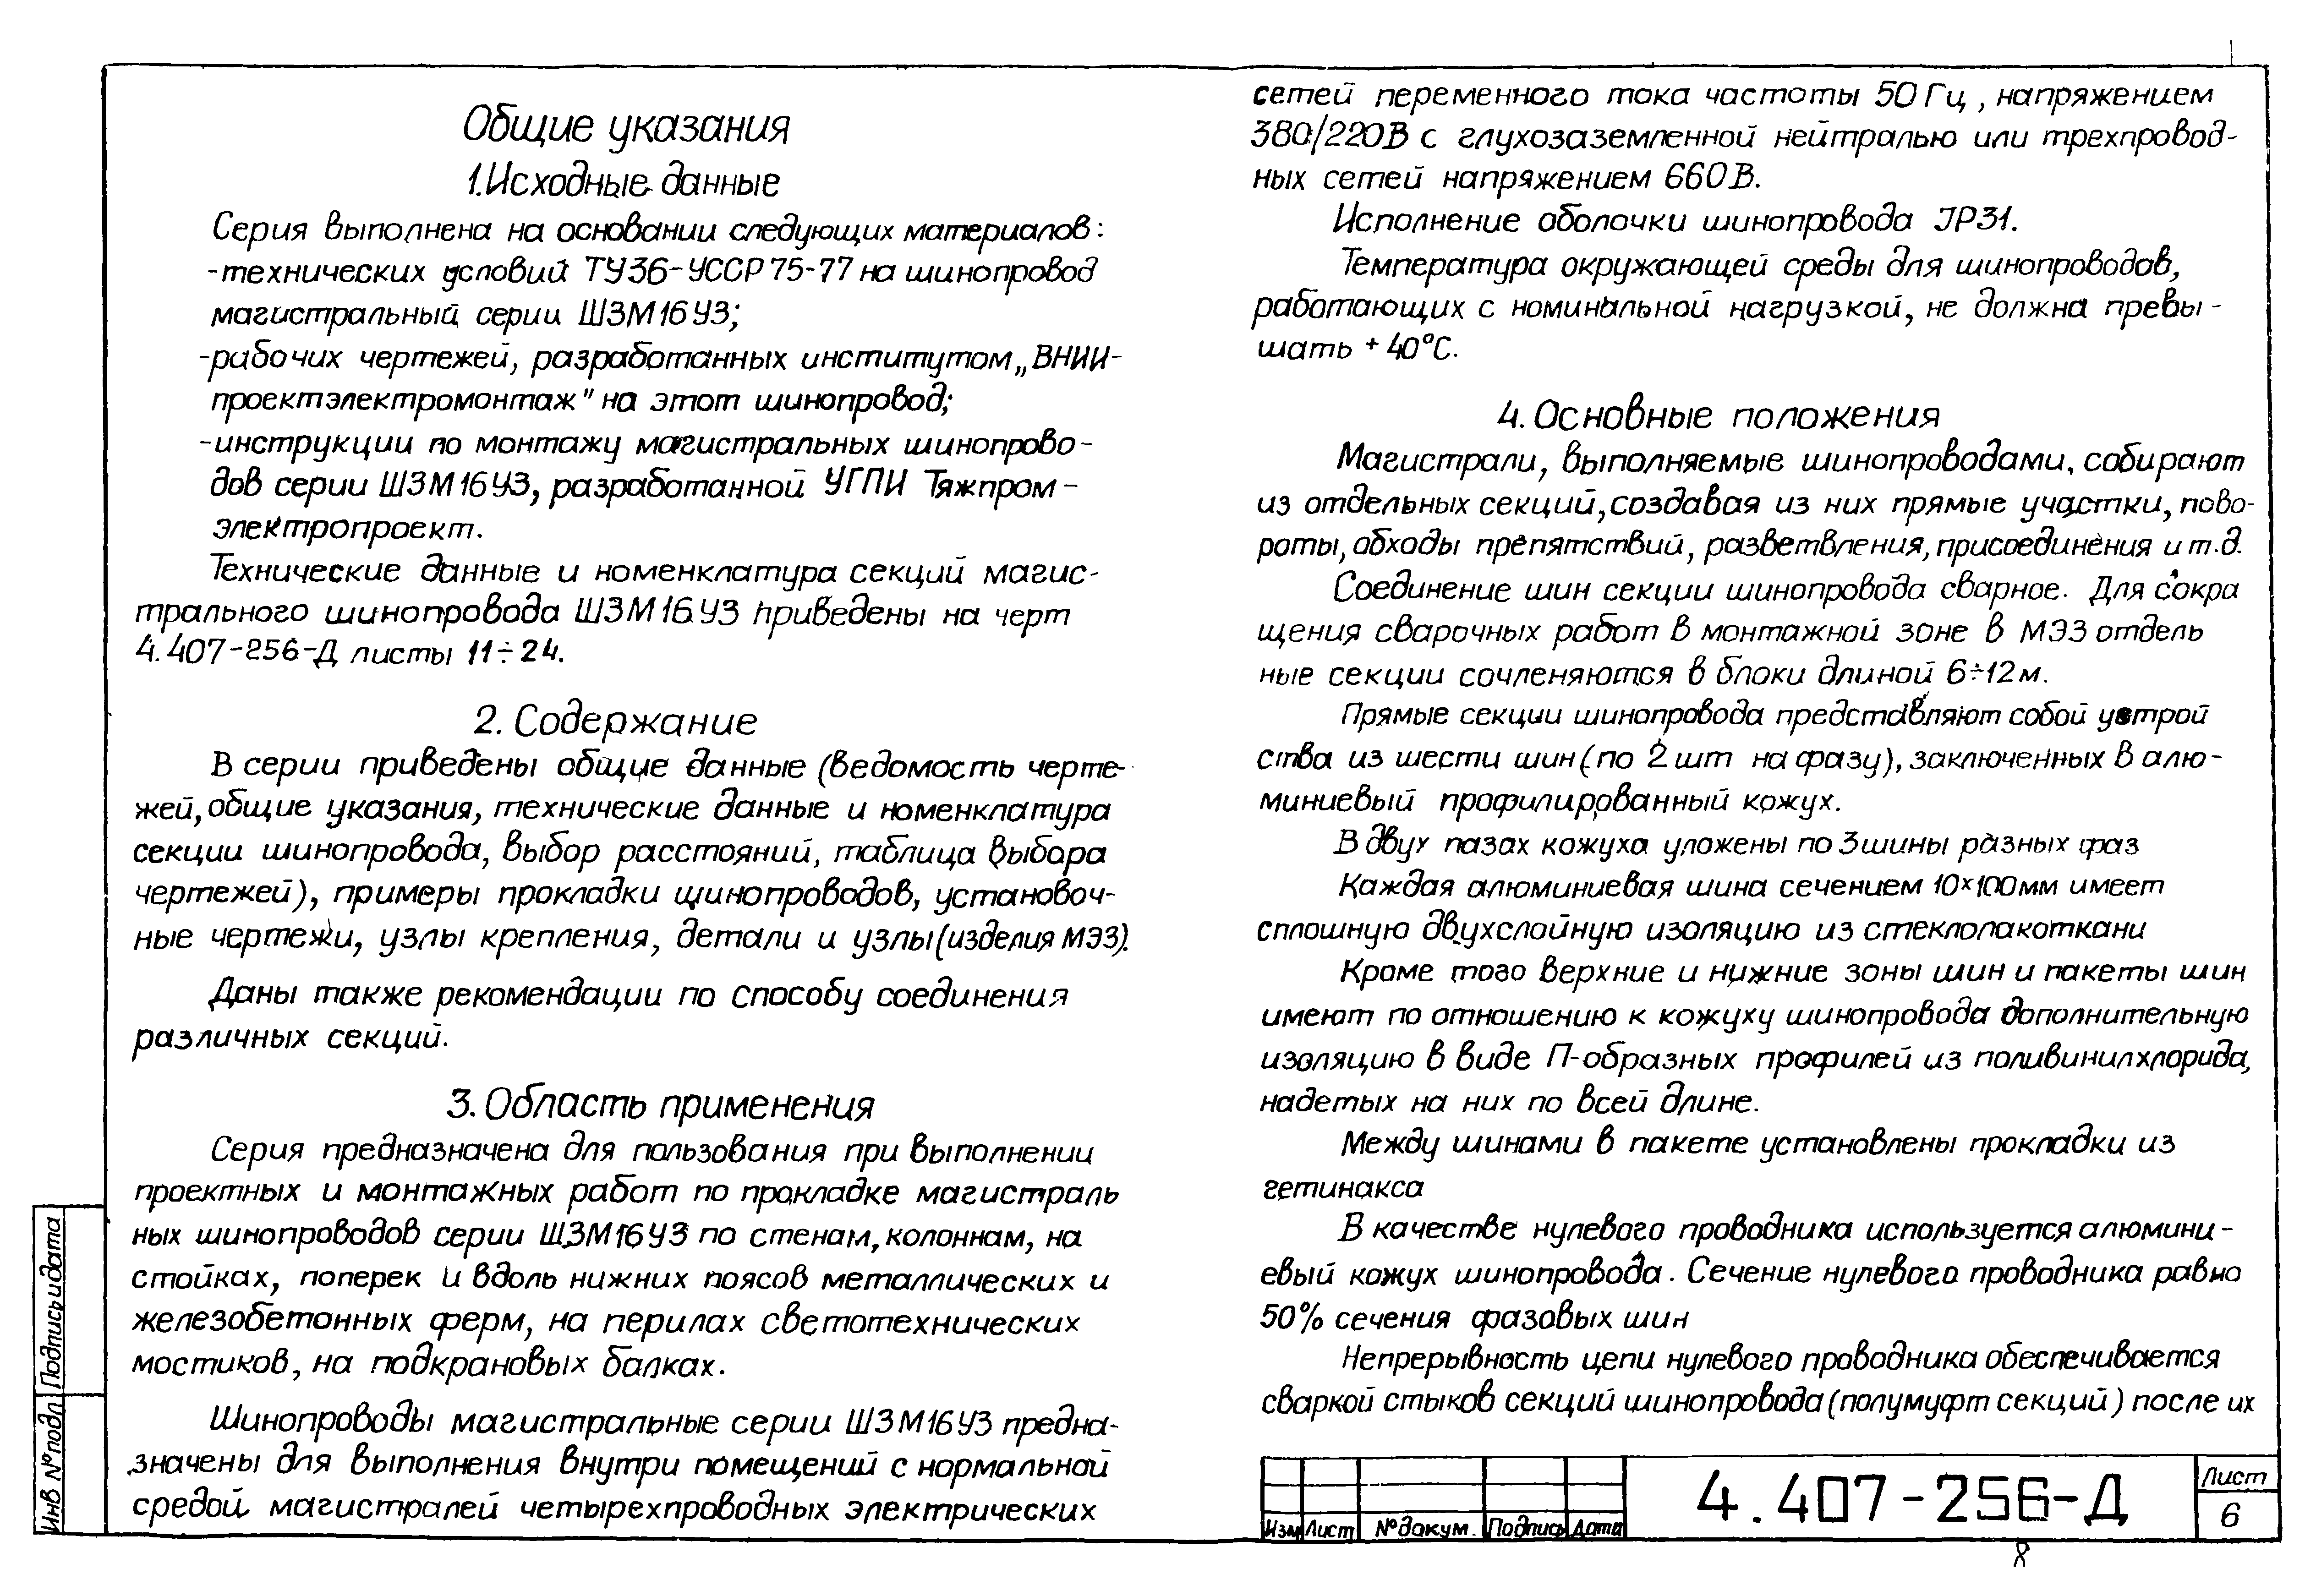 Общие указания
1. Исходные данные
Серия выполнена на основании следующих материалов:
-технических условий ТУ36-УССР 75-77 на шинопровод
магистральный серии ШЗМ16УЗ;
-рабочих чертежей, разработанных институтом „ВНИИ-
проектэлектромонтаж" на этот шинопровод;
-инструкции по монтажу магистральных шинопрово-
дов серии ШЗМ16УЗ, разработанной УГПИ Тяжпром-
электропроект.
Технические данные и номенклатура секций магис-
трального шинопровода ШЗМ16УЗ приведены на черт
4.407-256-Д листы 11÷24.
2. Содержание
В серии приведены общие данные (ведомость черте-
жей, общие указания, технические данные и номенклатура
секции шинопровода, выбор расстояний, таблица выбора
чертежей), примеры прокладки шинопроводов, установоч-
ные чертежи, узлы крепления, детали и узлы (изделия МЭЗ).
Даны также рекомендации по способу соединения
различных секций.
3. Область применения
Серия предназначена для пользования при выполнении
проектных и монтажных работ по прокладке магистраль
ных шинопроводов серии ШЗМ16УЗ по стенам, колоннам, на
стойках, поперек и вдоль нижних поясов металлических и
железобетонных ферм, на перилах светотехнических
мостиков, на подкрановых балках.
Шинопроводы магистральные серии ШЗМ16УЗ предна-
значены для выполнения внутри помещений с нормальной
средой магистралей четырехпроводных электрических
сетей переменного тока частоты 50 Гц, напряжением
380/220В с глухозаземленной нейтралью или трехпровод-
ных сетей напряжением 660В.
Исполнение оболочки шинопровода IP31.
Температура окружающей среды для шинопроводов,
работающих с номинальной нагрузкой, не должна превы-
шать +40°С.
4. Основные положения
Магистрали, выполняемые шинопроводами, собирают
из отдельных секций, создавая из них прямые участки, пово-
роты, обходы препятствий, разветвления, присоединения и т.д.
Соединение шин секции шинопровода сварное. Для сокра
щения сварочных работ в монтажной зоне в МЭЗ отдель
ные секции сочленяются в блоки длиной 6÷12м.
Прямые секции шинопровода представляют собой устрой
ства из шести шин (по 2 шт на фазу), заключенных в алю-
миниевый профилированный кожух.
В двух пазах кожуха уложены по 3 шины разных фаз
Каждая алюминиевая шина сечением 10×100мм имеет
сплошную двухслойную изоляцию из стеклолакоткани
Кроме того верхние и нижние зоны шин и пакеты шин
имеют по отношению к кожуху шинопровода дополнительную
изоляцию в виде П-образных профилей из поливинилхлорида,
надетых на них по всей длине.
Между шинами в пакете установлены прокладки из
гетинакса
В качестве нулевого проводника используется алюмини-
евый кожух шинопровода. Сечение нулевого проводника равно
50% сечения фазовых шин
Непрерывность цепи нулевого проводника обеспечивается
сваркой стыков секций шинопровода (полумуфт секций) после их
Инв № подл
Подпись и дата
Изм Лист № докум. Подпись Дата
4.407-256-Д
Лист
6
8